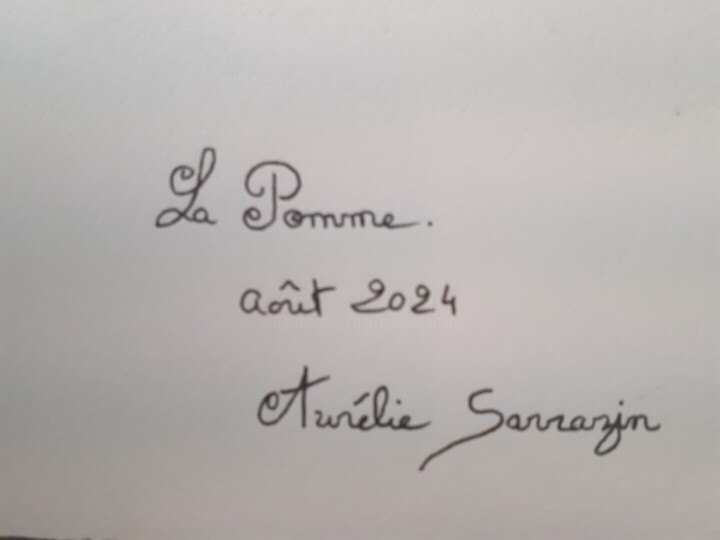 La Pomme.
août 2024
Aurélie Sarrazin